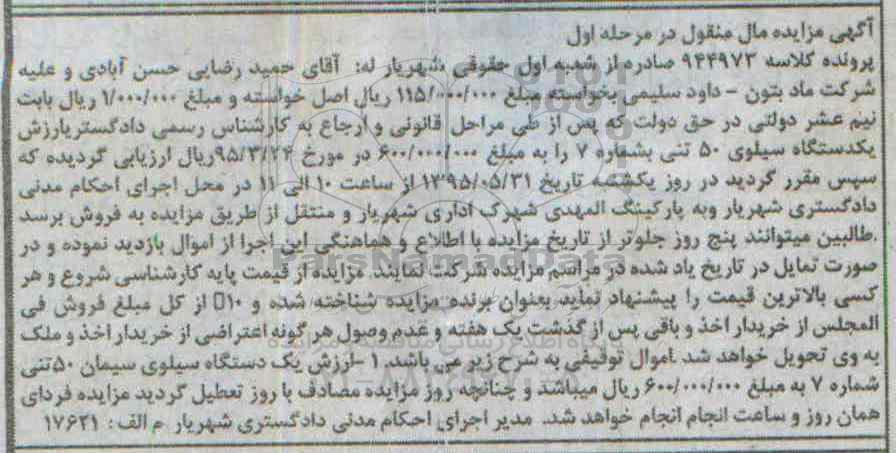 آگهی مزایده مال منقول در مرحله اول
پرونده کلاسه ۹۴۴۹۷۳ صادره از شعبه اول حقوقی شهریار له: آقای حمید رضایی حسن آبادی و علیه
شرکت ماد بتون - داود سلیمی بخواسته مبلغ ۱۱۵/۰۰۰/۰۰۰ ریال اصل خواسته و مبلغ ۱/۰۰۰/۰۰۰ ریال بابت
نیم عشر دولتی در حق دولت که پس از طی مراحل قانونی و ارجاع به کارشناس رسمی دادگستریارزش
یکدستگاه سیلوی ۵۰ تنی بشماره ۷ را به مبلغ ۶۰۰/۰۰۰/۰۰۰ در مورخ ۹۵/۳/۲۴ریال ارزیابی گردیده که
سپس مقرر گردید در روز یکشنبه تاریخ ۱۳۹۵/۰۵/۳۱ از ساعت ۱۰ الی ۱۱ در محل اجرای احکام مدنی
دادگستری شهریار وبه پارکینگ المهدی شهرک اداری شهریار و منتقل از طریق مزایده به فروش برسد
.طالبین میتوانند پنج روز جلوتر از تاریخ مزایده با اطلاع و هماهنگی این اجرا از اموال بازدید نموده و در
صورت تمایل در تاریخ یاد شده در مراسم مزایده شرکت نمایند. مزایده از قیمت پایه کارشناسی شروع و هر
کسی بالاترین قیمت را پیشنهاد نماید بعنوان برنده مزایده شناخته شده و ۱۰٪ از کل مبلغ فروش فی
المجلس از خریدار اخذ و باقی پس از گذشت یک هفته و عدم وصول هر گونه اعتراضی از خریدار اخذ و ملک
به وی تحویل خواهد شد .اموال توقیفی به شرح زیر می باشد، ۱ -ارزش یک دستگاه سیلوی سیمان ۵۰تنی
شماره ۷ به مبلغ ۶۰۰/۰۰۰/۰۰۰ ریال میباشد و چنانچه روز مزایده مصادف با روز تعطیل گردید مزایده فردای
همان روز و ساعت انجام انجام خواهد شد. مدیر اجرای احکام مدنی دادگستری شهریار م الف : ۱۷۶۲۱
ParsNamadData